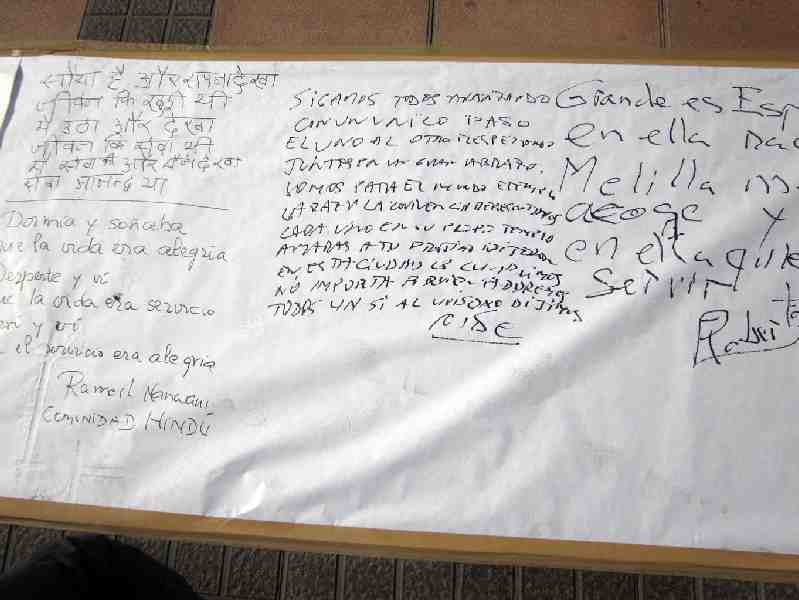 सोया है और सपना देखा
जीवन कि खुशी थी
मै उठा और देखा
जीवन कि सेवा थी
मै सेवा में और मैंने देखा
सेवा आनन्द था
Dormia y soñaba
que la vida era alegria
Desperte y vi
que la vida era servicio
y vi
el servicio era alegria
Rameil Nanwani
COMUNIDAD HINDÚ
SIGAMOS TODOS AVANZANDO
CON UN UNICO PASO
EL UNO AL OTRO RESPETANDO
JUNTAR EN UN GRAN ABRAZO.
SOMOS PARA EL MUNDO EJEMPLO
LA PAZ Y LA CONVIVENCIA
CADA UNO EN SU TEMPLO
A TU
EN ESTA CIUDAD LE
NO IMPORTA A QUIEN ADORES
TODOS UN SI AL UNISONO DIJIMOS
Grande es Esp
en ella nac
Melilla m
acoge y
en ella quie
Servir